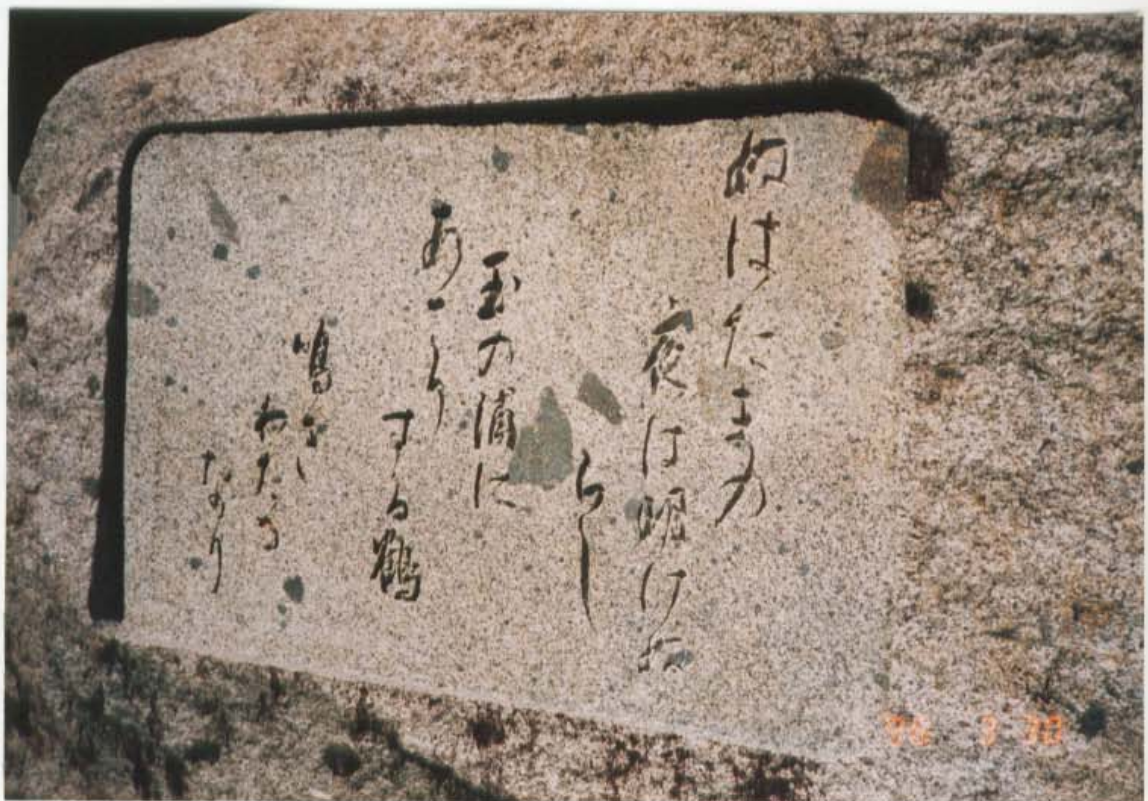 ぬはたまの
夜は明けぬ
らし
玉の浦に
あさり
する鶴
鳴き
わたる
なり